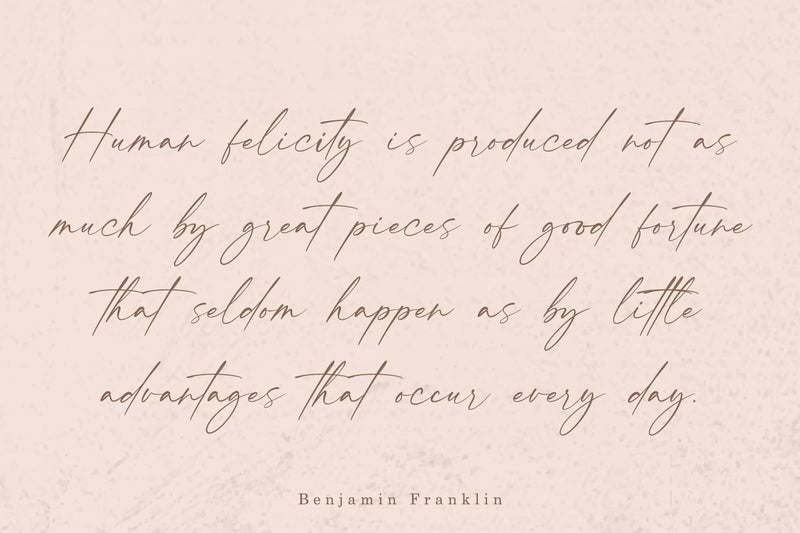 Human felicity is produced not as
much by great pieces of good fortune
that seldom happen as by little
advantages that occur every day.
Benjamin Franklin